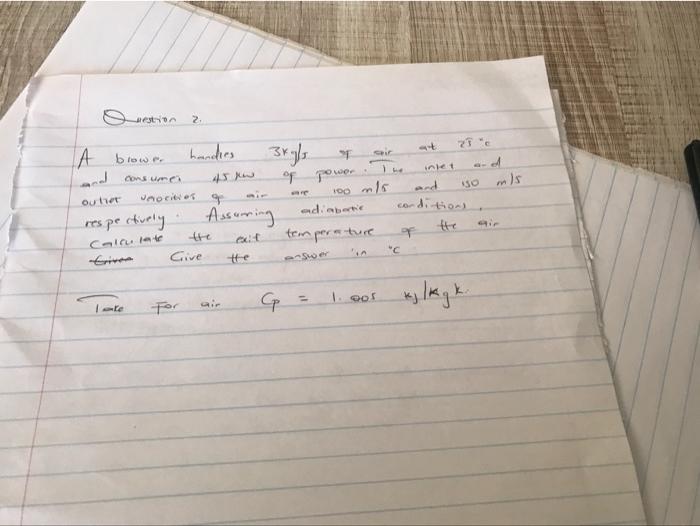 Question 2.
A blower handles 3kg/s of air at 25°c
and consumes 45 kw of power. The inlet and
outlet velocities of air are 100 m/s and 150 m/s
respectively. Assuming adiabatic conditions,
Calculate the exit temperature of the air
Given Give the answer in °c
Take For air Cp = 1.005 kj/kgk.